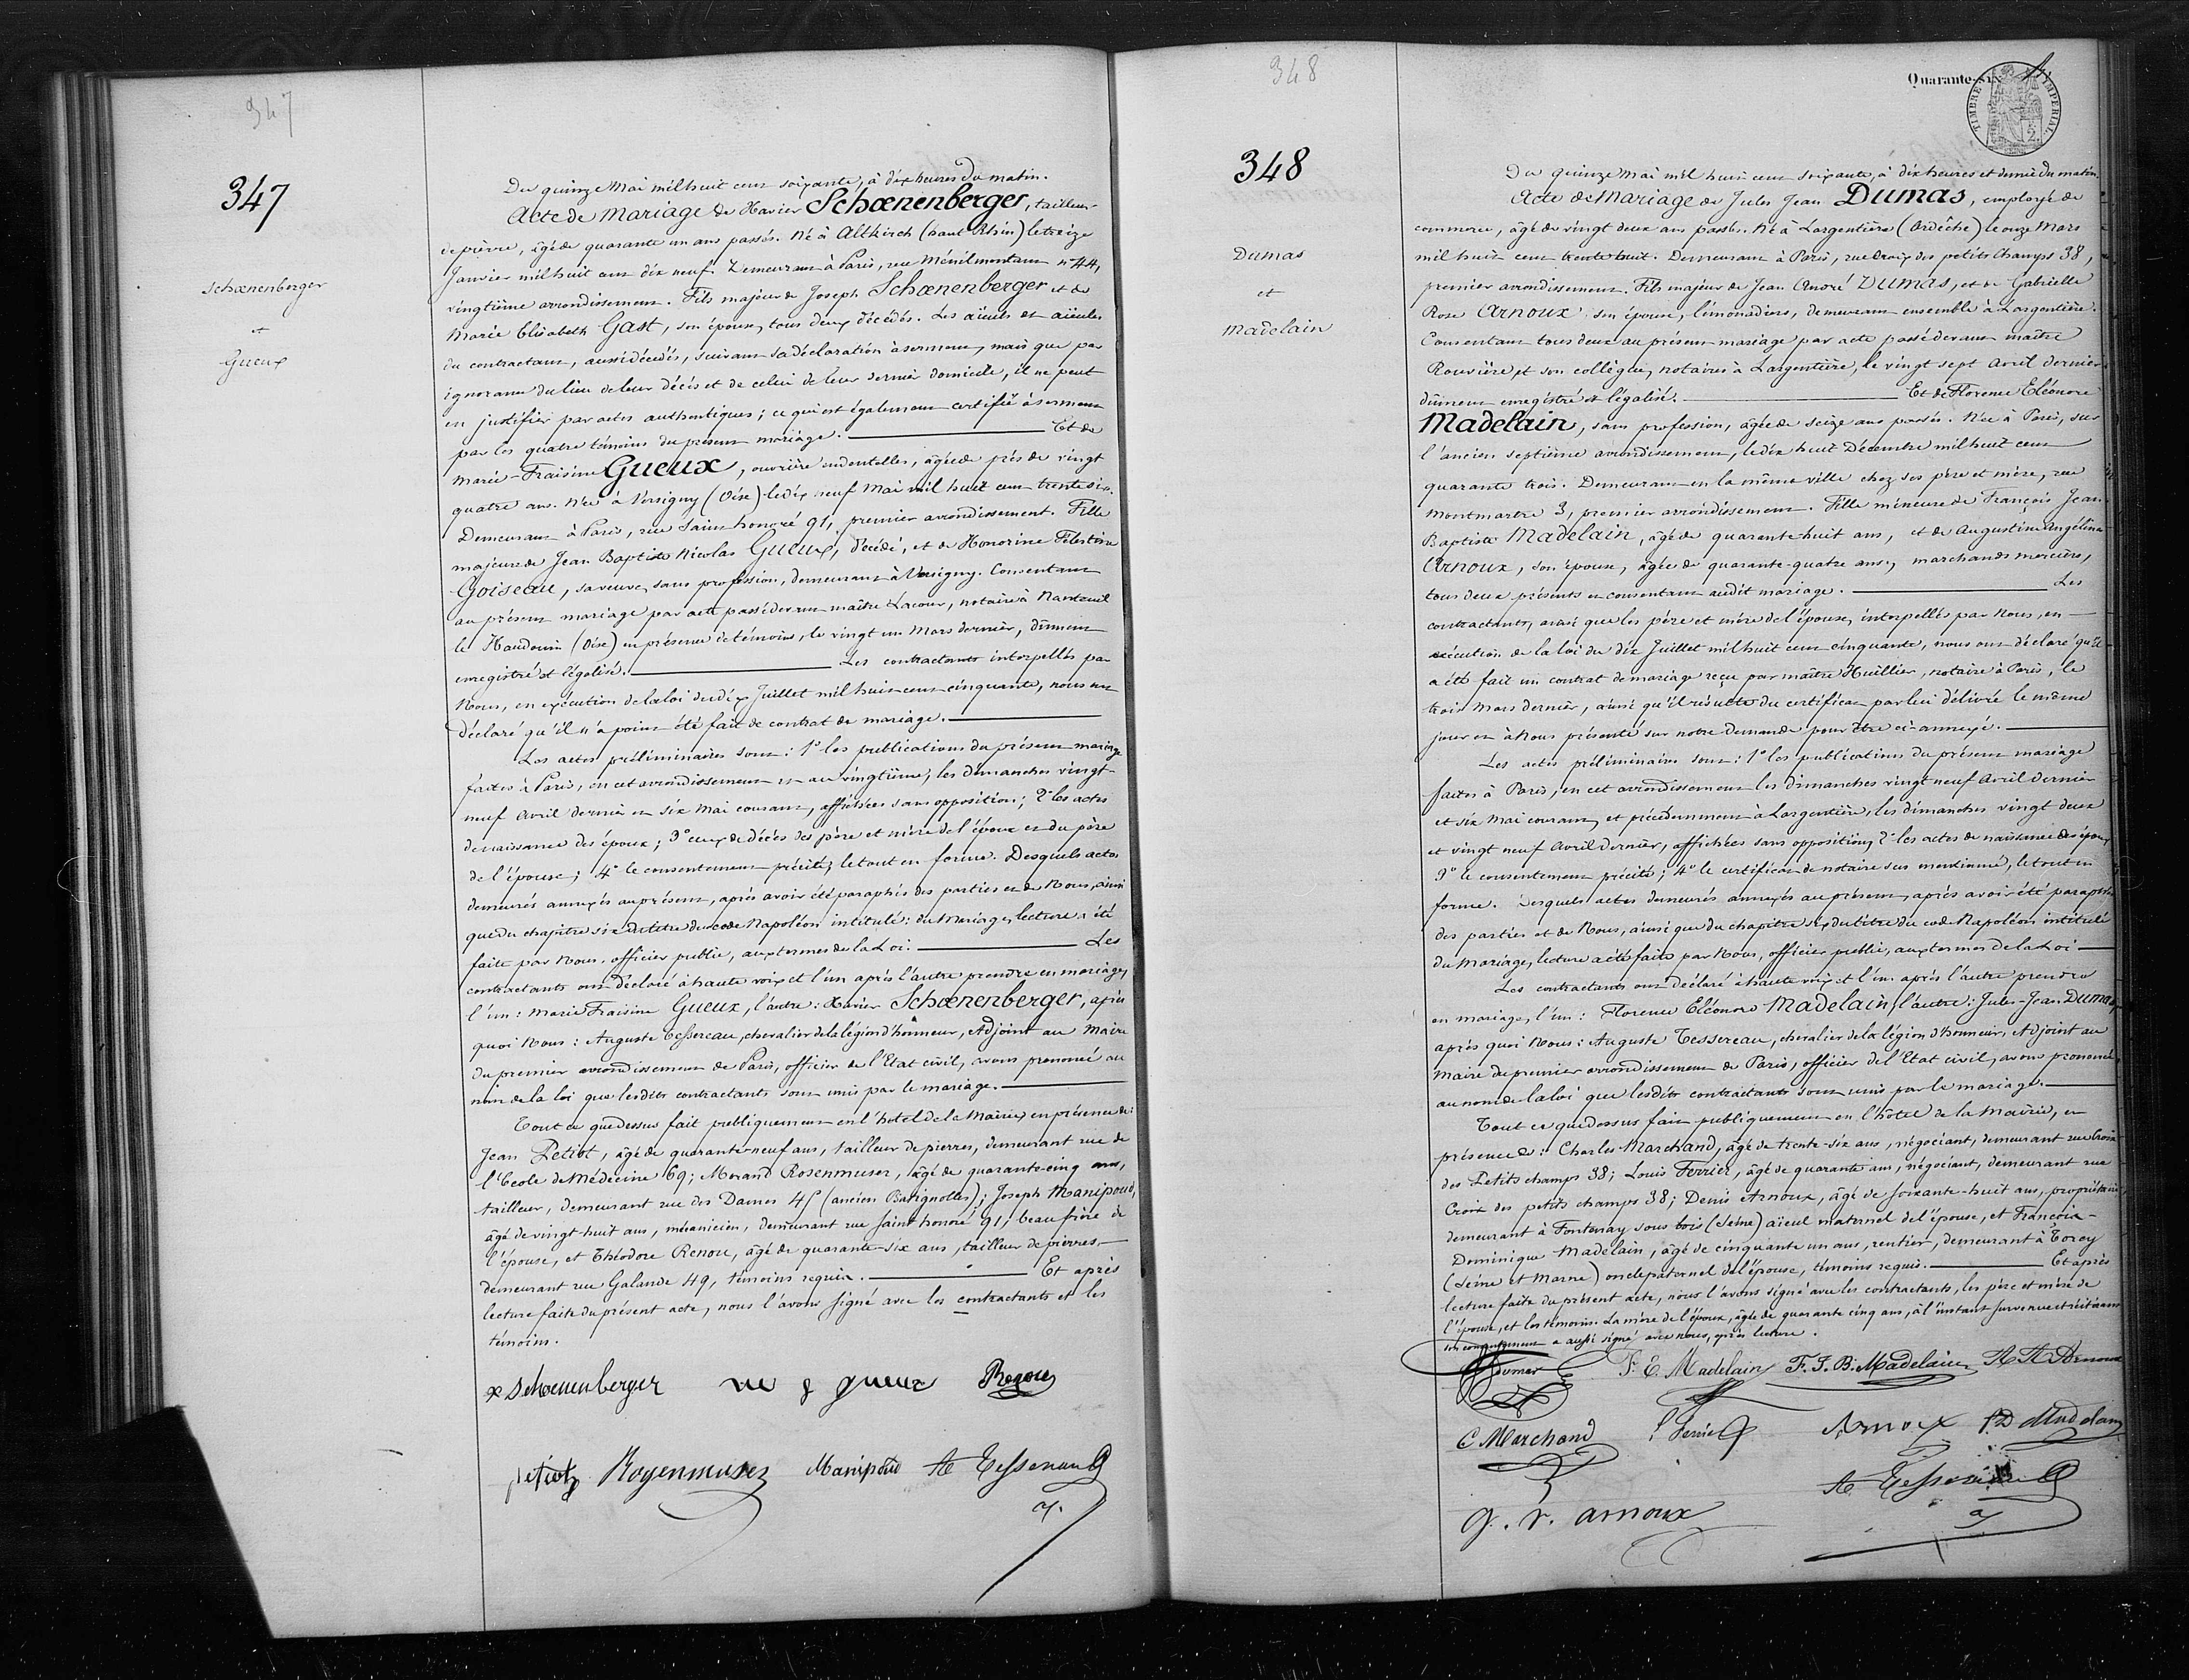 347
347
Schœnenberger
et
Gueux
Du quinze Mai mil huit cent soixante, à dix heures du matin.
Acte de Mariage de Xavier Schœnenberger, tailleur
de pierre, âgé de quarante un ans passés. Né à Altkirch (haut Rhin) le treize
Janvier mil huit cent dix neuf. Demeurant à Paris, rue Ménilmontant nº 44,
vingtième arrondissement. Fils majeur de Joseph Schœnenberger et de
Marie Elisabeth Gast, son épouse, tous deux décédés. Les aïeuls et aïeules
du contractant, aussi décédés, suivant sa déclaration à serment, mais que par
ignorance du lieu de leur décès et de celui de leur dernier domicile, il ne peut
en justifier par actes authentiques; ce qui est également certifié à serment
par les quatre témoins du présent mariage. Et de
Marie-Fraisine Gueux, ouvrière en dentelles, âgée de près de vingt
quatre ans. Née à Versigny (Oise) le dix neuf Mai mil huit cent trente six.
Demeurant à Paris, rue Saint honoré 91, premier arrondissement. Fille
majeure de Jean Baptiste Nicolas Gueux, décédé, et de Honorine Félestine
Goiseau, sa veuve, sans profession, demeurant à Versigny. Consentant
au présent mariage par acte passé devant maître Lacour, notaire à Nanteuil
le Haudouin (Oise) en présence de témoins, le vingt un Mars dernier, dûment
enregistré et légalisé. Les contractants interpellés par
Nous, en exécution de la loi du dix Juillet mil huit cent cinquante, nous ont
déclaré qu'il n'a point été fait de contrat de mariage.
Les actes préliminaires sont: 1º les publications du présent mariage
faites à Paris, en cet arrondissement et au vingtième, les dimanches vingt
neuf Avril dernier et six Mai courant, affichées sans opposition; 2º les actes
de naissance des époux; 3º ceux de décès des père et mère de l'époux et du père
de l'épouse; 4º le consentement précité; le tout en forme. Desquels actes
demeurés annexés au présent, après avoir été paraphés des parties et de Nous, ainsi
que du chapitre six du titre du code Napoléon intitulé: du Mariage, lecture a été
faite par Nous, officier public, aux termes de la Loi. Les
contractants ont déclaré à haute voix et l'un après l'autre prendre en mariage,
l'un: Marie Fraisine Gueux, l'autre: Xavier Schœnenberger, après
quoi Nous: Auguste Tessereau, chevalier de la légion d'honneur, Adjoint au Maire
du premier arrondissement de Paris, officier de l'Etat civil, avons prononcé au
nom de la loi que lesdits contractants sont unis par le mariage.
Tout ce que dessus fait publiquement en l'hôtel de la Mairie, en présence de:
Jean Petiot, âgé de quarante-neuf ans, tailleur de pierres, demeurant rue de
l'Ecole de Médecine 69; Morand Rosenmuser, âgé de quarante-cinq ans,
tailleur, demeurant rue des Dames 45 (ancien Batignolles); Joseph Manipoud,
âgé de vingt-huit ans, mécanicien, demeurant rue Saint honoré 91, beau frère de
l'épouse, et Théodore Renou, âgé de quarante-six ans, tailleur de pierres,
demeurant rue Galande 49, témoins requis. Et après
lecture faite du présent acte, nous l'avons signé avec les contractants et les
témoins.
x Schoenenberger me f gueux Regou
petiot Rogenmuser Manipoud A Tessereau
348
348
Dumas
et
Madelain
Quarante-six
TIMBRE IMPERIAL
2.
Du quinze Mai mil huit cent soixante, à dix heures et demie du matin.
Acte de Mariage de Jules Jean Dumas, employé de
commerce, âgé de vingt deux ans passés. Né à Largentière (Ardèche) le onze Mars
mil huit cent trente huit. Demeurant à Paris, rue Croix des petits Champs 38,
premier arrondissement. Fils majeur de Jean André Dumas, et de Gabrielle
Rose Arnoux son épouse, limonadiers, demeurant ensemble à Largentière.
Consentant tous deux au présent mariage par acte passé devant maître
Rouvière et son collègue, notaires à Largentière, le vingt sept Avril dernier
dûment enregistré et légalisé. Et de Florence Eléonore
Madelain, sans profession, âgée de seize ans passés. Née à Paris, sur
l'ancien septième arrondissement, le dix huit Décembre mil huit cent
quarante trois. Demeurant en la même ville chez ses père et mère, rue
Montmartre 3, premier arrondissement. Fille mineure de François Jean
Baptiste Madelain, âgé de quarante huit ans, et de Augustine Angéline
Arnoux, son épouse, âgée de quarante-quatre ans, marchands merciers,
tous deux présents et consentant audit mariage. Les
contractants, ainsi que les père et mère de l'épouse, interpellés par Nous, en
exécution de la loi du dix Juillet mil huit cent cinquante, nous ont déclaré qu'il
a été fait un contrat de mariage reçu par maître Huillier, notaire à Paris, le
trois Mars dernier, ainsi qu'il résulte du certificat par lui délivré le même
jour et à Nous présenté sur notre demande pour être ci-annexé.
Les actes préliminaires sont: 1º les publications du présent mariage
faites à Paris, en cet arrondissement les dimanches vingt neuf Avril dernier
et six Mai courant, et précédemment à Largentière, les dimanches vingt deux
et vingt neuf Avril dernier, affichées sans opposition; 2º les actes de naissance des époux;
3º le consentement précité; 4º le certificat de notaire sus mentionné, le tout en
forme. Desquels actes demeurés annexés au présent, après avoir été paraphés
des parties et de Nous, ainsi que du chapitre six du titre du code Napoléon intitulé
du Mariage, lecture a été faite par Nous, officier public, aux termes de la Loi
Les contractants ont déclaré à haute voix et l'un après l'autre prendre
en mariage, l'un: Florence Eléonore Madelain, l'autre: Jules-Jean Dumas,
après quoi Nous: Auguste Tessereau, chevalier de la légion d'honneur, Adjoint au
Maire du premier arrondissement de Paris, officier de l'Etat civil, avons prononcé
au nom de la loi que lesdits contractants sont unis par le mariage.
Tout ce que dessus fait publiquement en l'hôtel de la Mairie, en
présence de: Charles Marchand, âgé de trente-six ans, négociant, demeurant rue Croix
des Petits champs 38; Louis Ferrier, âgé de quarante ans, négociant, demeurant rue
Croix des petits champs 38; Denis Arnoux, âgé de soixante-huit ans, propriétaire,
demeurant à Fontenay sous bois (Seine) aïeul maternel de l'épouse, et François-
Dominique Madelain, âgé de cinquante un ans, rentier, demeurant à Torcy
(Seine et Marne) oncle paternel de l'épouse, témoins requis. Et après
lecture faite du présent acte, nous l'avons signé avec les contractants, les père et mère de
l'épouse, et les témoins. La mère de l'époux, âgée de quarante cinq ans, à l'instant survenue et réitérant
son consentement a aussi signé avec nous, après lecture.
Dumas F. E. Madelain F. J. B. Madelain A A Arnoux
C Marchand L Ferrier Arnoux F D Madelain
A Tessereau
g. r. arnoux